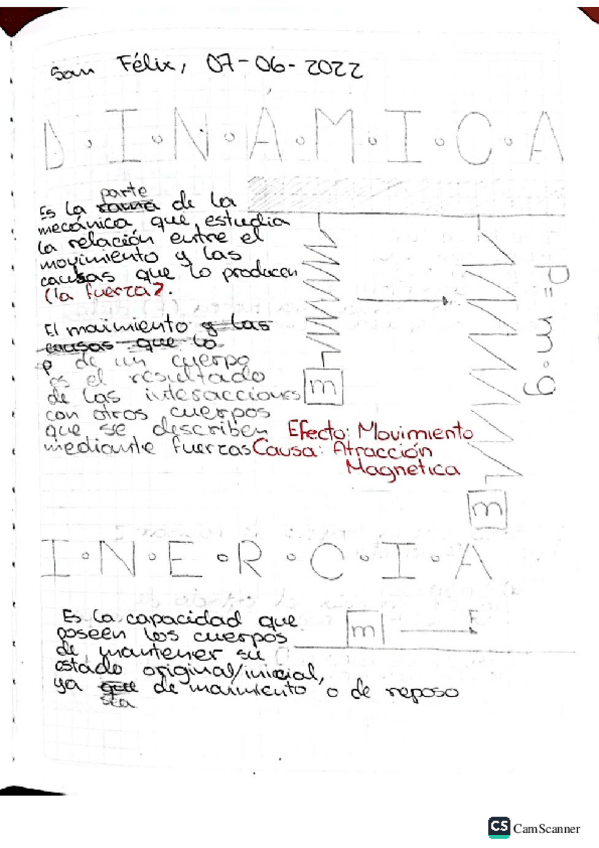 San Félix, 07-06-2022
D.I.N.A.M.I.C.A
parte
Es la rama de la
mecánica que estudia
la relación entre el
movimiento y las
causas que lo producen
(la fuerza).
El movimiento y las
causas que lo
p de un cuerpo
es el resultado
de las interacciones
con otros cuerpos
que se describen
mediante fuerzas
m
P = m . g
Efecto: Movimiento
Causa: Atracción
Magnetica
m
I.N.E.R.C.I.A
Es la capacidad que
poseen los cuerpos
de mantener su
estado original/inicial,
ya que de movimiento o de reposo
sta
m
F
CS CamScanner